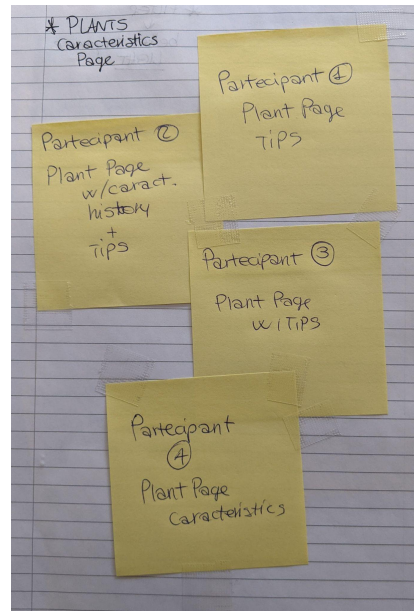 * PLANTS
Caracteristics
Page
Partecipant ①
Plant Page
TIPS
Partecipant ②
Plant Page
w/caract.
history
+
TIPS
Partecipant ③
Plant Page
w/TIPS
Partecipant
④
Plant Page
Caracteristics